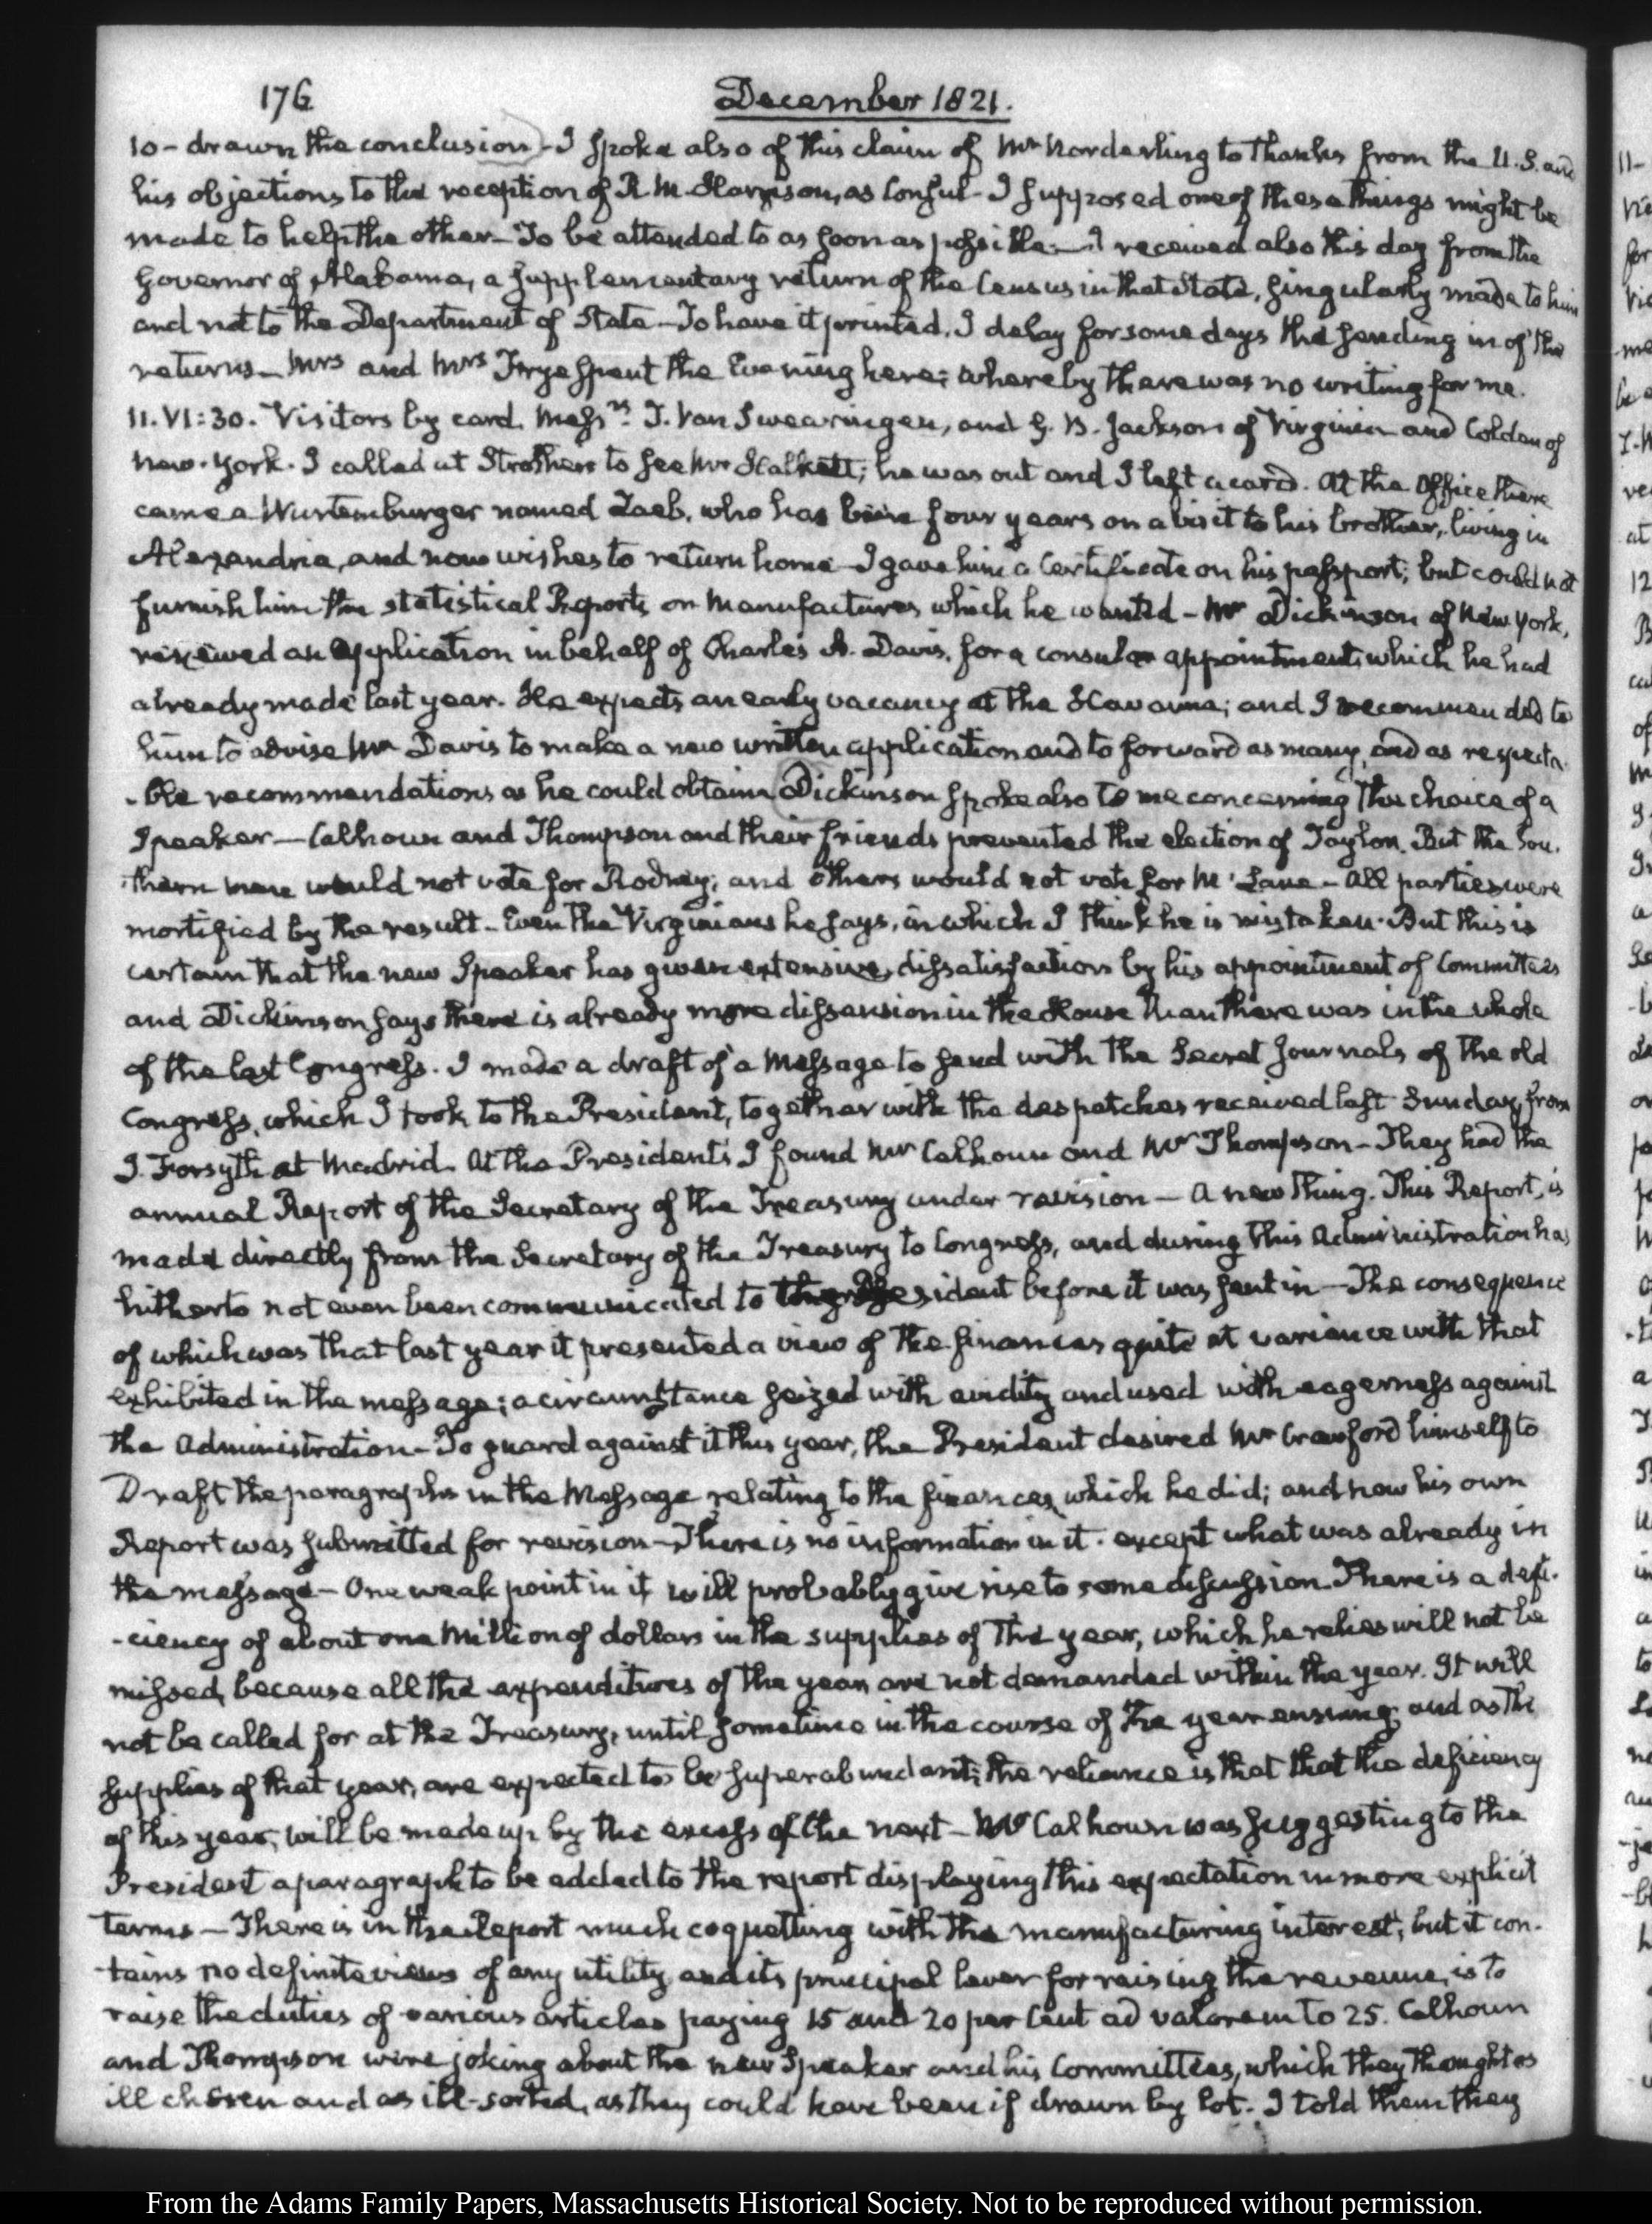 176
December 1821.
10- drawn the conclusion - I spoke also of this claim of Mr Norderling to thanks from the U.S. and
his objections to the reception of R. M. Harrison, as Consul - I supposed one of these things might be
made to help the other - To be attended to as soon as possible - I received also this day from the
Governor of Alabama, a supplementary return of the Census in that State, singularly made to him
and not to the Department of State - To have it printed. I delay for some days the sending in of the
returns - Mrs and Mrs Frye spent the Evening here; whereby there was no writing for me.
11. VI:30. Visitors by card. Messrs. T. Van Swearingen, and G. B. Jackson of Virginia and Colden of
New-York. I called at Strothers to see Mr Halkett; he was out and I left a card. At the Office there
came a Wurtemburger named Laeb, who has been four years on a visit to his brother, living in
Alexandria, and now wishes to return home - I gave him a Certificate on his passport; but could not
furnish him the statistical Reports on Manufactures which he wanted - Mr Dickinson of New York,
renewed an application in behalf of Charles A. Davis, for a consular appointment, which he had
already made last year. He expects an early vacancy at the Havanna; and I recommended to
him to advise Mr Davis to make a new written application and to forward as many, and as respecta-
-ble recommendations as he could obtain. Dickinson spoke also to me concerning the choice of a
Speaker - Calhoun and Thompson and their friends prevented the election of Taylor. But the Sou-
thern men would not vote for Rodney; and others would not vote for Mc Lane - All parties were
mortified by the result - Even the Virginians he says, in which I think he is mistaken. But this is
certain that the new Speaker has given extensive dissatisfaction by his appointment of Committees
and Dickinson says there is already more dissension in the House than there was in the whole
of the last Congress. I made a draft of a Message to send with the Secret Journals of the old
Congress, which I took to the President, together with the despatches received last Sunday, from
J. Forsyth at Madrid. At the Presidents I found Mr Calhoun and Mr Thompson - They had the
annual Report of the Secretary of the Treasury under revision - A new thing. This Report, is
made directly from the Secretary of the Treasury to Congress, and during this Administration has
hitherto not even been communicated to the President before it was sent in - The consequence
of which was that last year it presented a view of the finances quite at variance with that
exhibited in the message; a circumstance seized with avidity and used with eagerness against
the Administration - To guard against it this year, the President desired Mr Crawford himself to
Draft the paragraphs in the Message relating to the finances, which he did; and now his own
Report was submitted for revision - There is no information in it. except what was already in
the message - One weak point in it will probably give rise to some discussion. There is a defi-
-ciency of about one Million of dollars in the supplies of the year, which he relies will not be
missed, because all the expenditures of the year are not demanded within the year. It will
not be called for at the Treasury, until sometime in the course of the year ensuing; and as the
supplies of that year, are expected to be superabundant; the reliance is that that the deficiency
of this year, will be made up by the excess of the next - Mr Calhoun was suggesting to the
President a paragraph to be added to the report displaying this expectation in more explicit
terms - There is in the Report much coquetting with the manufacturing interest; but it con-
-tains no definite views of any utility and its principal lever for raising the revenue, is to
raise the duties of various articles paying 15 and 20 per Cent ad valorem to 25. Calhoun
and Thompson were joking about the new Speaker and his Committees, which they thought as
ill chosen and as ill-sorted, as they could have been if drawn by lot. I told them they
From the Adams Family Papers, Massachusetts Historical Society. Not to be reproduced without permission.